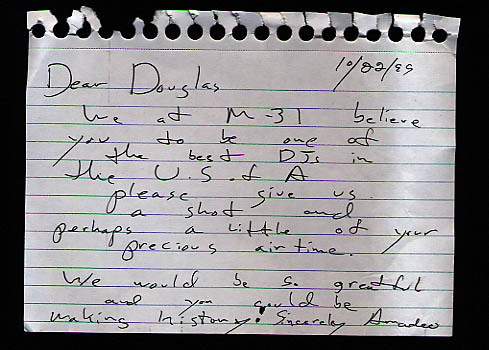 10/22/99
Dear Douglas
We at M-31 believe
you to be one of
the best DJs in
the U.S. of A
please give us
a shot and
perhaps a little of your
precious air time.
We would be so greatful
and you would be
making history. Sincerely Amadeo